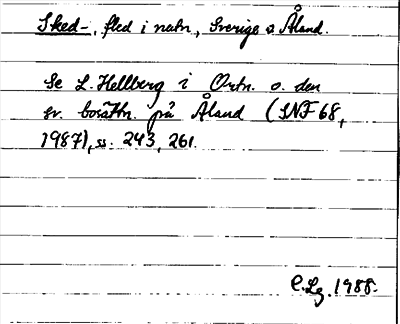 Sked-, fled i natn., Sverige o Åland.
Se L. Hellberg i Ortn. o. den
sv. bosättn. på Åland (SNF 68,
1987), ss. 243, 261.
C.Lg. 1988.